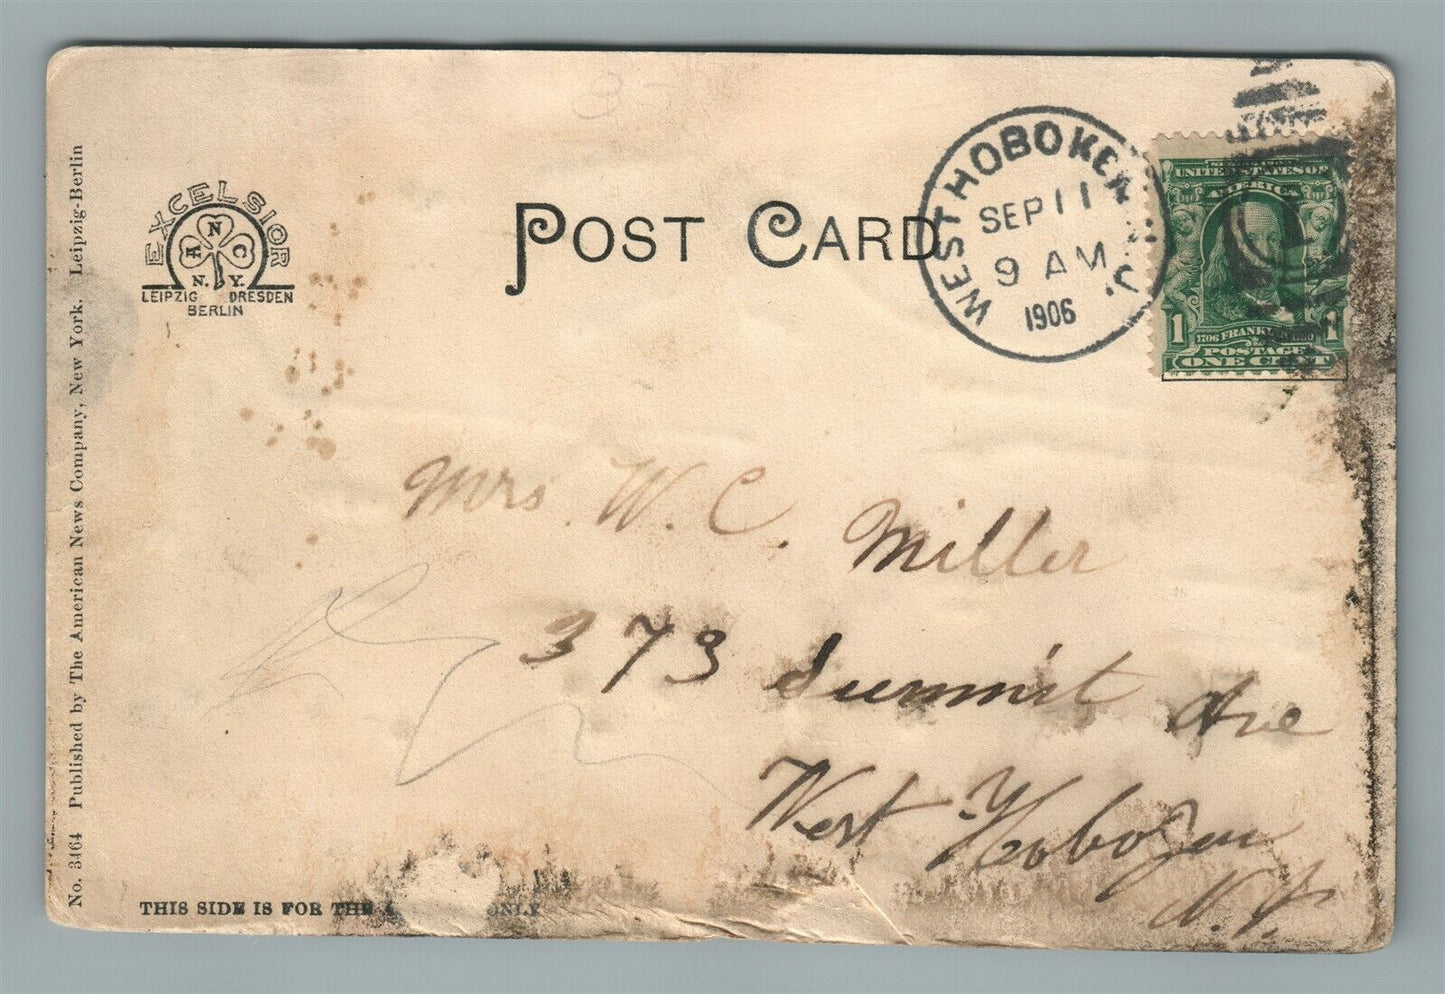 No. 3464 Published by The American News Company, New York. Leipzig-Berlin
EXCELSIOR
A N C
N. Y.
LEIPZIG DRESDEN
BERLIN
POST CARD
WEST HOBOKEN N.J.
SEP 11
9 AM
1906
UNITED STATES OF
AMERICA
1 1
1706 FRANKLIN
POSTAGE
ONE CENT
Mrs. W. C. Miller
373 Summit Ave
West Hoboken
N. J.
THIS SIDE IS FOR THE ONLY